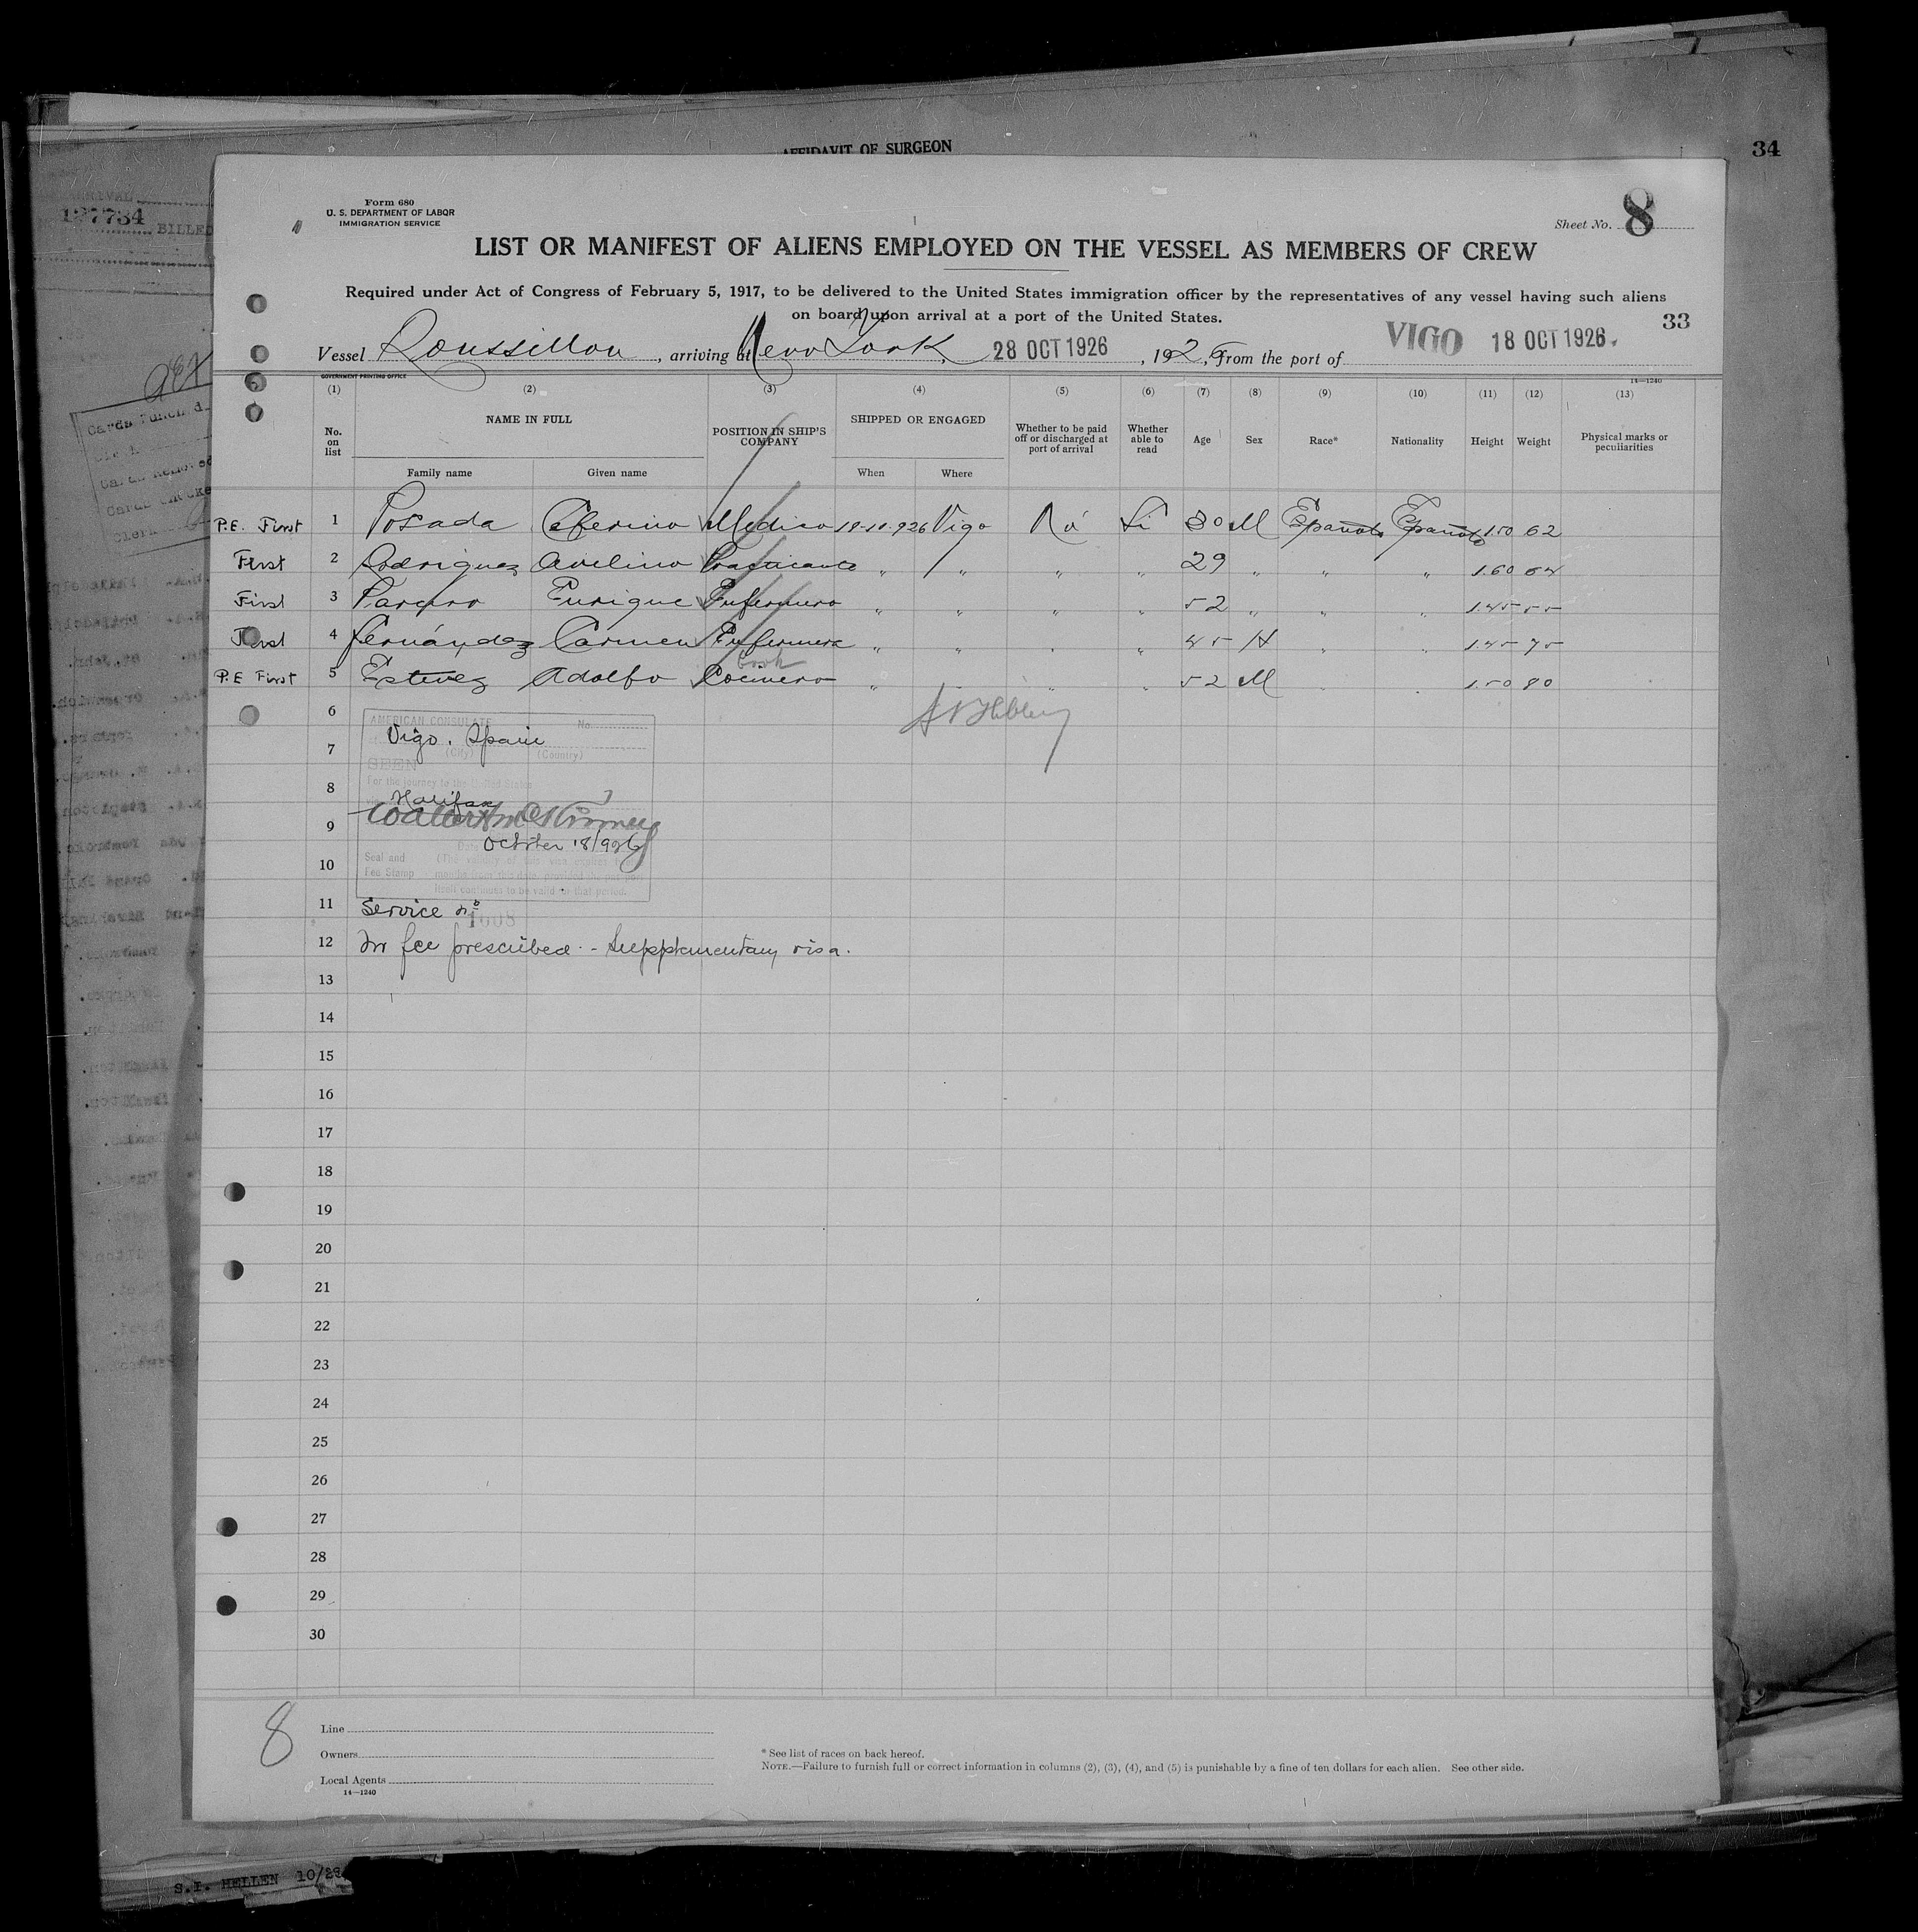 AFFIDAVIT OF SURGEON
34
127734
BILLED
Form 680
U. S. DEPARTMENT OF LABOR
IMMIGRATION SERVICE
Sheet No. 8
LIST OR MANIFEST OF ALIENS EMPLOYED ON THE VESSEL AS MEMBERS OF CREW
Required under Act of Congress of February 5, 1917, to be delivered to the United States immigration officer by the representatives of any vessel having such aliens
on board upon arrival at a port of the United States.
33
Vessel Roussillon, arriving at New York, 28 OCT 1926, 1926, from the port of VIGO 18 OCT 1926.
GOVERNMENT PRINTING OFFICE
14—1240
(1) (2) (3) (4) (5) (6) (7) (8) (9) (10) (11) (12) (13)
No. on list NAME IN FULL Family name Given name POSITION IN SHIP'S COMPANY SHIPPED OR ENGAGED When Where Whether to be paid off or discharged at port of arrival Whether able to read Age Sex Race* Nationality Height Weight Physical marks or peculiarities
P.E. First 1 Posada Ceferino Medico 18-10-926 Vigo No Si 30 M Española Española 1.50 62
First 2 Rodriguez Avelino Practicante " " " " 29 " " " 1.60 64
First 3 Parcero Enrique Enfermero " " " " 52 " " " 1.45 55
First 4 Fernández Carmen Enfermera " " " " 45 H " " 1.45 75
Cook
P.E First 5 Estevez Adolfo Cocinero " " " " 52 M " " 1.50 80
6
AMERICAN CONSULATE No.
7 Vigo, Spain
(City) (Country)
SEEN
For the journey to the United States
8
Halifax
9
October 18/926
10
Seal and Fee Stamp
(The validity of this visa expires
months from this date, provided the passport
itself continues to be valid for that period.
11 Service No 1608
12 No fee prescribed - Supplementary visa.
13
14
15
16
17
18
19
20
21
22
23
24
25
26
27
28
29
30
8
Line
Owners
Local Agents
14—1240
* See list of races on back hereof.
NOTE.—Failure to furnish full or correct information in columns (2), (3), (4), and (5) is punishable by a fine of ten dollars for each alien. See other side.
S.I. HELLEN 10/28